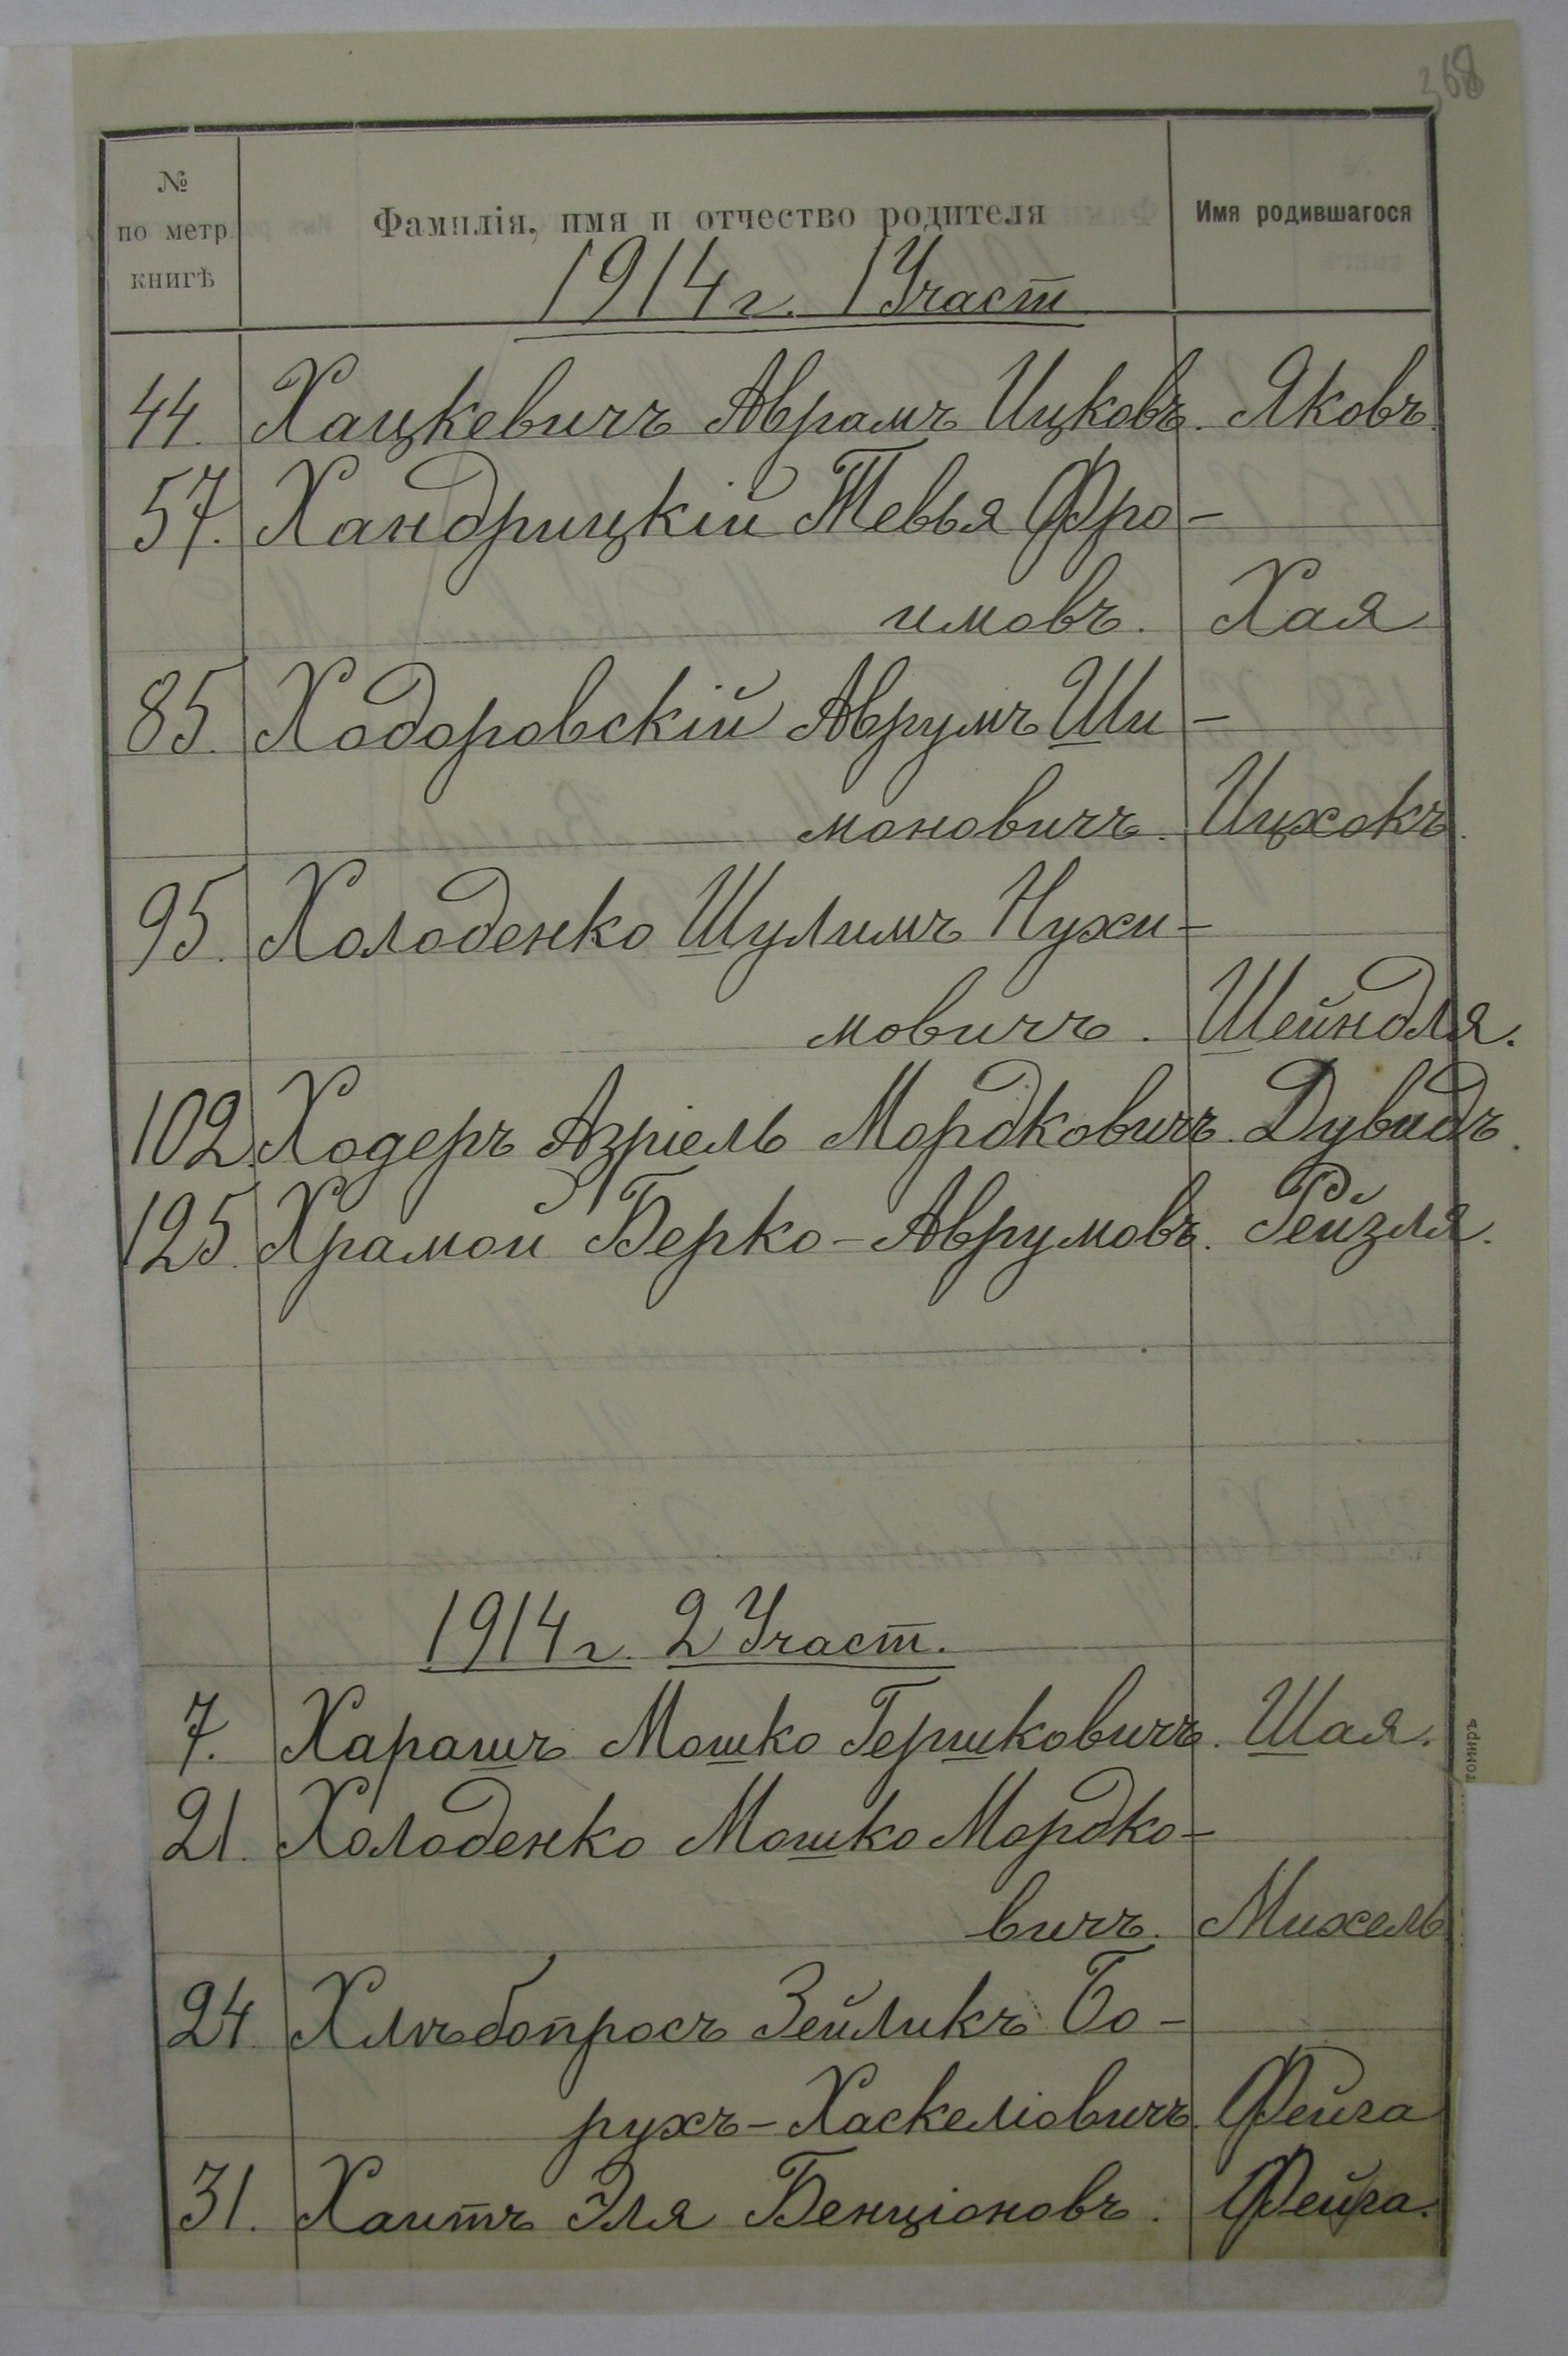 368
№ по метр. книгѣ
Фамилія, имя и отчество родителя
Имя родившагося
1914 г. 1 Участ
44. Хацкевичъ Аврамъ Ицковъ. Яковъ.
57. Хандрицкій Тевья Фро-
имовъ. Хая
85. Ходоровскій Аврумъ Ши-
моновичъ. Ицхокъ.
95. Холоденко Шулимъ Нухи-
мовичъ. Шейндля.
102. Ходеръ Азріель Мордковичъ. Дувидъ.
125. Храмой Берко-Аврумовъ. Рейзля.
1914 г. 2 Участ.
7. Харашъ Мошко Гершковичъ. Шая.
21. Холоденко Мошко Мордко-
вичъ. Михель
24. Хлѣбопросъ Зейликъ Бо-
рухъ-Хаскеліовичъ. Фейга
31. Хаитъ Эля Бенціоновъ. Фейга.
томиръ